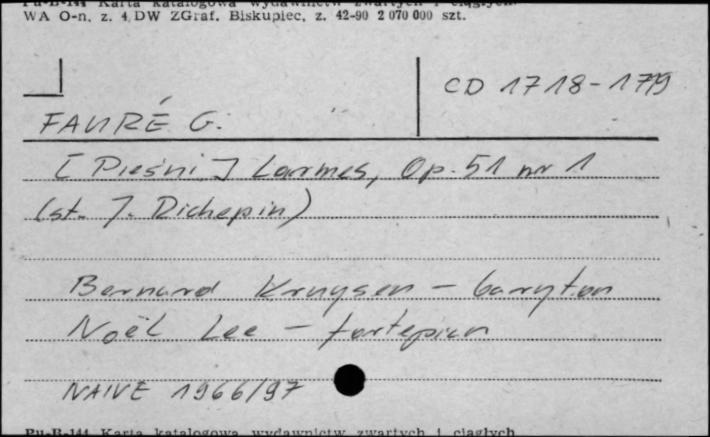 Pu-B-144 Karta katalogowa wydawnictw zwartych i ciągłych
WA O-n. z. 4 DW ZGraf. Biskupiec, z. 42-90 2 070 000 szt.
CD 1718-1719
FAURÉ G.
[Pieśni] Larmes, Op. 51 nr 1
(st. J. Richepin)
Bernard Kruysen - baryton
Noël Lee - fortepian
NAIVE 1966/97
Pu-B-144 Karta katalogowa wydawnictw zwartych i ciągłych